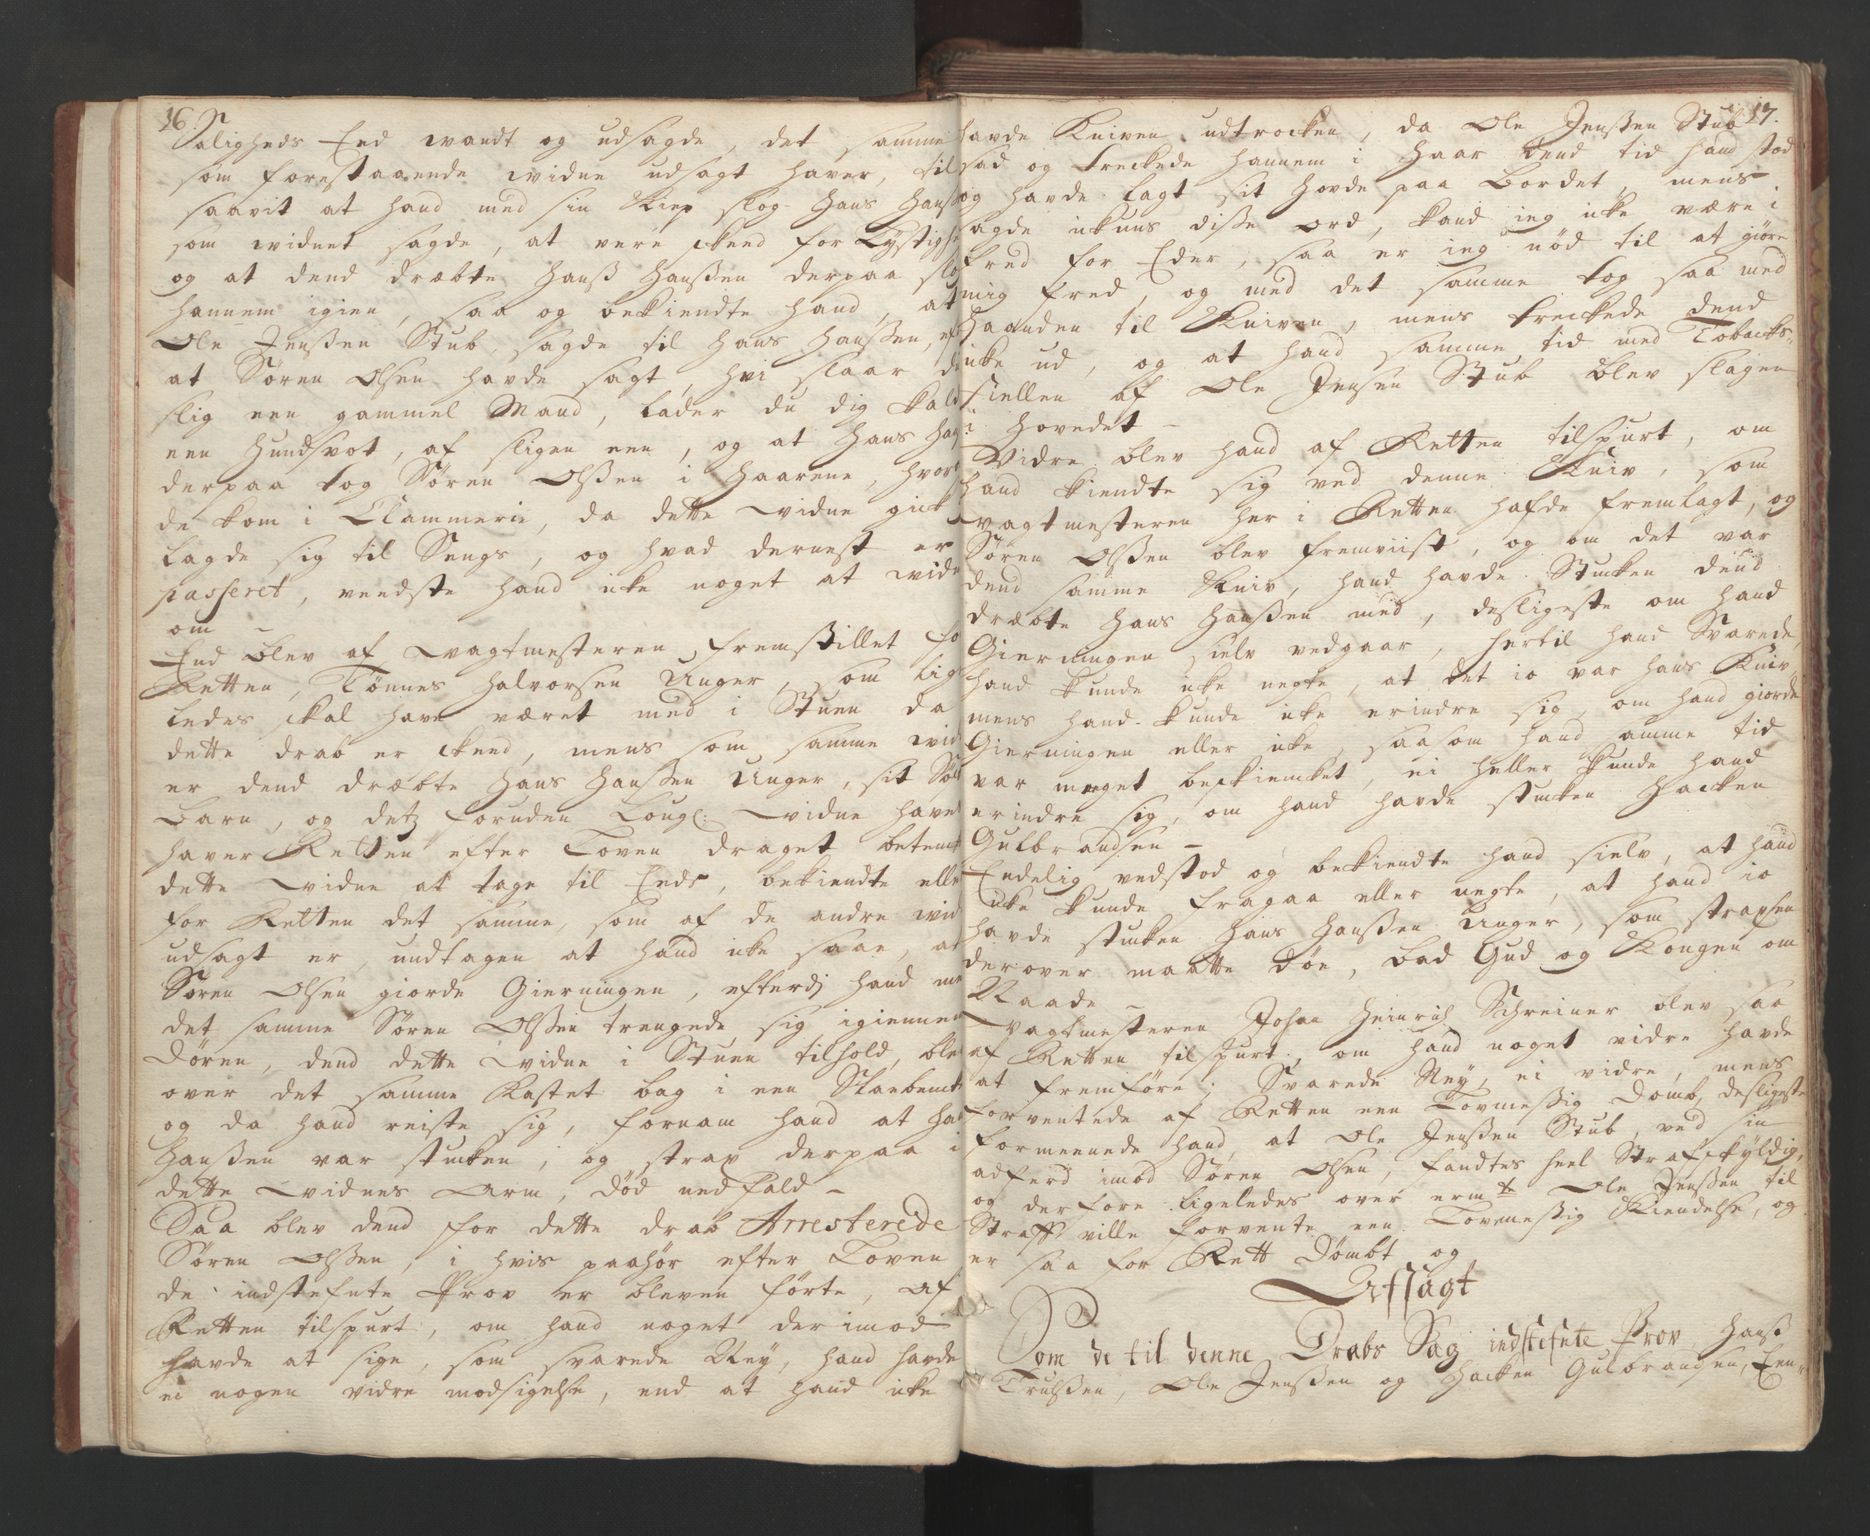 16.
Saligheds Eed wandt og udsagde, det samme
som forestaaende widne udsagt haver, til
saavit at hand med sin Kiep slog Hans Hanß
som widnet sagde, at vere skeed for Lystighe
og at dend dræbte Hanß Hanßen derpaa slo
hannem igien, saa og bekiendte hand, at
Ole Jenßen Stub, sagde til Hans Hanßen, ef
at Søren Olsen havde sagt, hvi slaar du
slig een gammel Mand, lader du dig kald
een Hundsvot, af sligen een, og at Hans Han
derpaa tog Søren Olßen i Haarene, hvor
de kom i Clammerie, da dette widne gick
lagde sig til Sengs, og hvad dernest er
passeret, veedste hand icke noget at wid
om –
End blev af wagtmesteren fremstillet fo
Retten, Tönnes Halvorsen Unger, som lig
ledes skal have været med i Stuen da
dette drab er skeed, mens som samme wid
er dend dræbte Hans Hanßen Unger, sit Sös
Barn, og detz foruden Lougl: widne have
haver Retten efter Loven draget betenk
dette widne at tage til Eeds, bekiendte elle
for Retten det samme, som af de andre wid
udsagt er, undtagen at hand icke saae, at
Søren Olsen giorde Gierningen, efterdj hand me
det samme Søren Olßen trengede sig igiennem
Dören, dend dette widne i Stuen tilhold, ble
over det samme kastet bag i een Slaebenk
og da hand reiste sig, fornam hand at Ha
Hanßen var stucken, og strax derpaa i
dette widnes Arm, död nedfald –
Saa blev dend for dette drab Arresterede
Søren Olßen, i hvis paahör efter Loven
de indstefnte Prov er bleven förte, af
Retten tilspurt, om hand noget derimod
havde at sige, som svarede Ney, hand havde
ei nogen vidre modsigelse, end at hand icke
17.
havde Kniven udtrocken, da Ole Jenßen Stub
sad og treckede hannem i Haar dend tid hand stod
og havde lagt sit Hovde paa Bordet, mens
sagde ickuns diße ord, kand ieg icke være i
fred for Eder, saa er ieg nöd til at giöre
mig fred, og med det samme tog saa med
Haanden til Kniven, mens treckede dend
icke ud, og at hand samme tid med Tobacks-
siellen af Ole Jensen Stub blev slagen
i Hovedet –
Vidre blev hand af Retten tilspurt, om
hand kiendte sig ved denne Kniv, som
wagtmesteren her i Retten hafde fremlagt, og
Søren Olßen blev fremviist, og om det var
dend samme Kniv, hand havde Stucken dend
dræbte Hans Hanßen med, desligeste om hand
Gierningen sielv vedgaar, hertil hand Svarede,
hand kunde icke negte, at det io var hans Kniv,
mens hand kunde icke erindre sig, om hand giorde
Gierningen eller icke, saasom hand amme tid
var meget beskiencket, ei heller kunde hand
erindre sig, om hand havde stucken Hacken
Gulbrandsen –
Endelig vedstod og bekiendte hand sielv, at hand
icke kunde fragaa eller negte, at hand io
havde stucken Hans Hanßen Unger, som straxsen
derover maatte döe, bad Gud og Kongen om
Naade –
wagtmesteren Johan Heinrich Schreiner blev saa
af Retten tilspurt, om hand noget vidre havde
at fremföre; Svarede Ney, ei vidre, mens
forventede af Retten een Lovmeßig Domb, desligeste
formeenede hand, at Ole Jenßen Stub, ved sin
adferd imod Søren Olsen, fandtes heel Strafskÿldig,
og derfore ligeledes over erm:te Ole Jenßen til
Straff ville forvente een Lovmeßig Kiendelse, og
er saa for Rett Dömbt og
Afsagt
Som de til denne Drabs Sag indstefnte Prov Hans
Trulßen, Ole Jenßen og Hacken Gulbrandsen, Een-